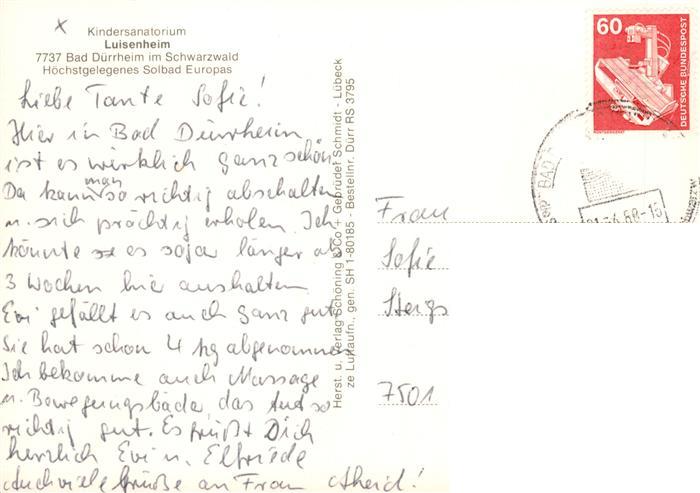 x
Kindersanatorium
Luisenheim
7737 Bad Dürrheim im Schwarzwald
Höchstgelegenes Solbad Europas
Liebe Tante Sofie!
Hier in Bad Dürrheim
ist es wirklich ganz schön
Da kann man so richtig abschalten
u. sich prächtig erholen. Ich
könnte es sogar länger als
3 Wochen hier aushalten.
Evi gefällt es auch ganz gut
Sie hat schon 4 kg abgenommen
Ich bekomme auch Massage
u. Bewegungsbäder, das tut so
richtig gut. Es grüßt Dich
herzlich Evi u. Elfriede
Auch viele Grüße an Frau
Herst. u. Verlag Schöning & Co + Gebrüder Schmidt - Lübeck
ze Luftaufn., gen. SH 1-80185 - Bestellnr. Dürr RS 3795
60
DEUTSCHE BUNDESPOST
RÖNTGENGERÄT
BAD
Frau
Sofie
7501